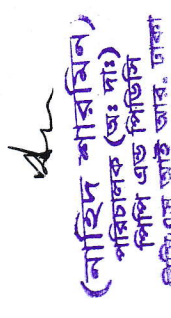 (নাহিদ শারমিন)
পরিচালক (অঃ দাঃ)
পিপি এন্ড পিডিসি
আর. ঢাকা